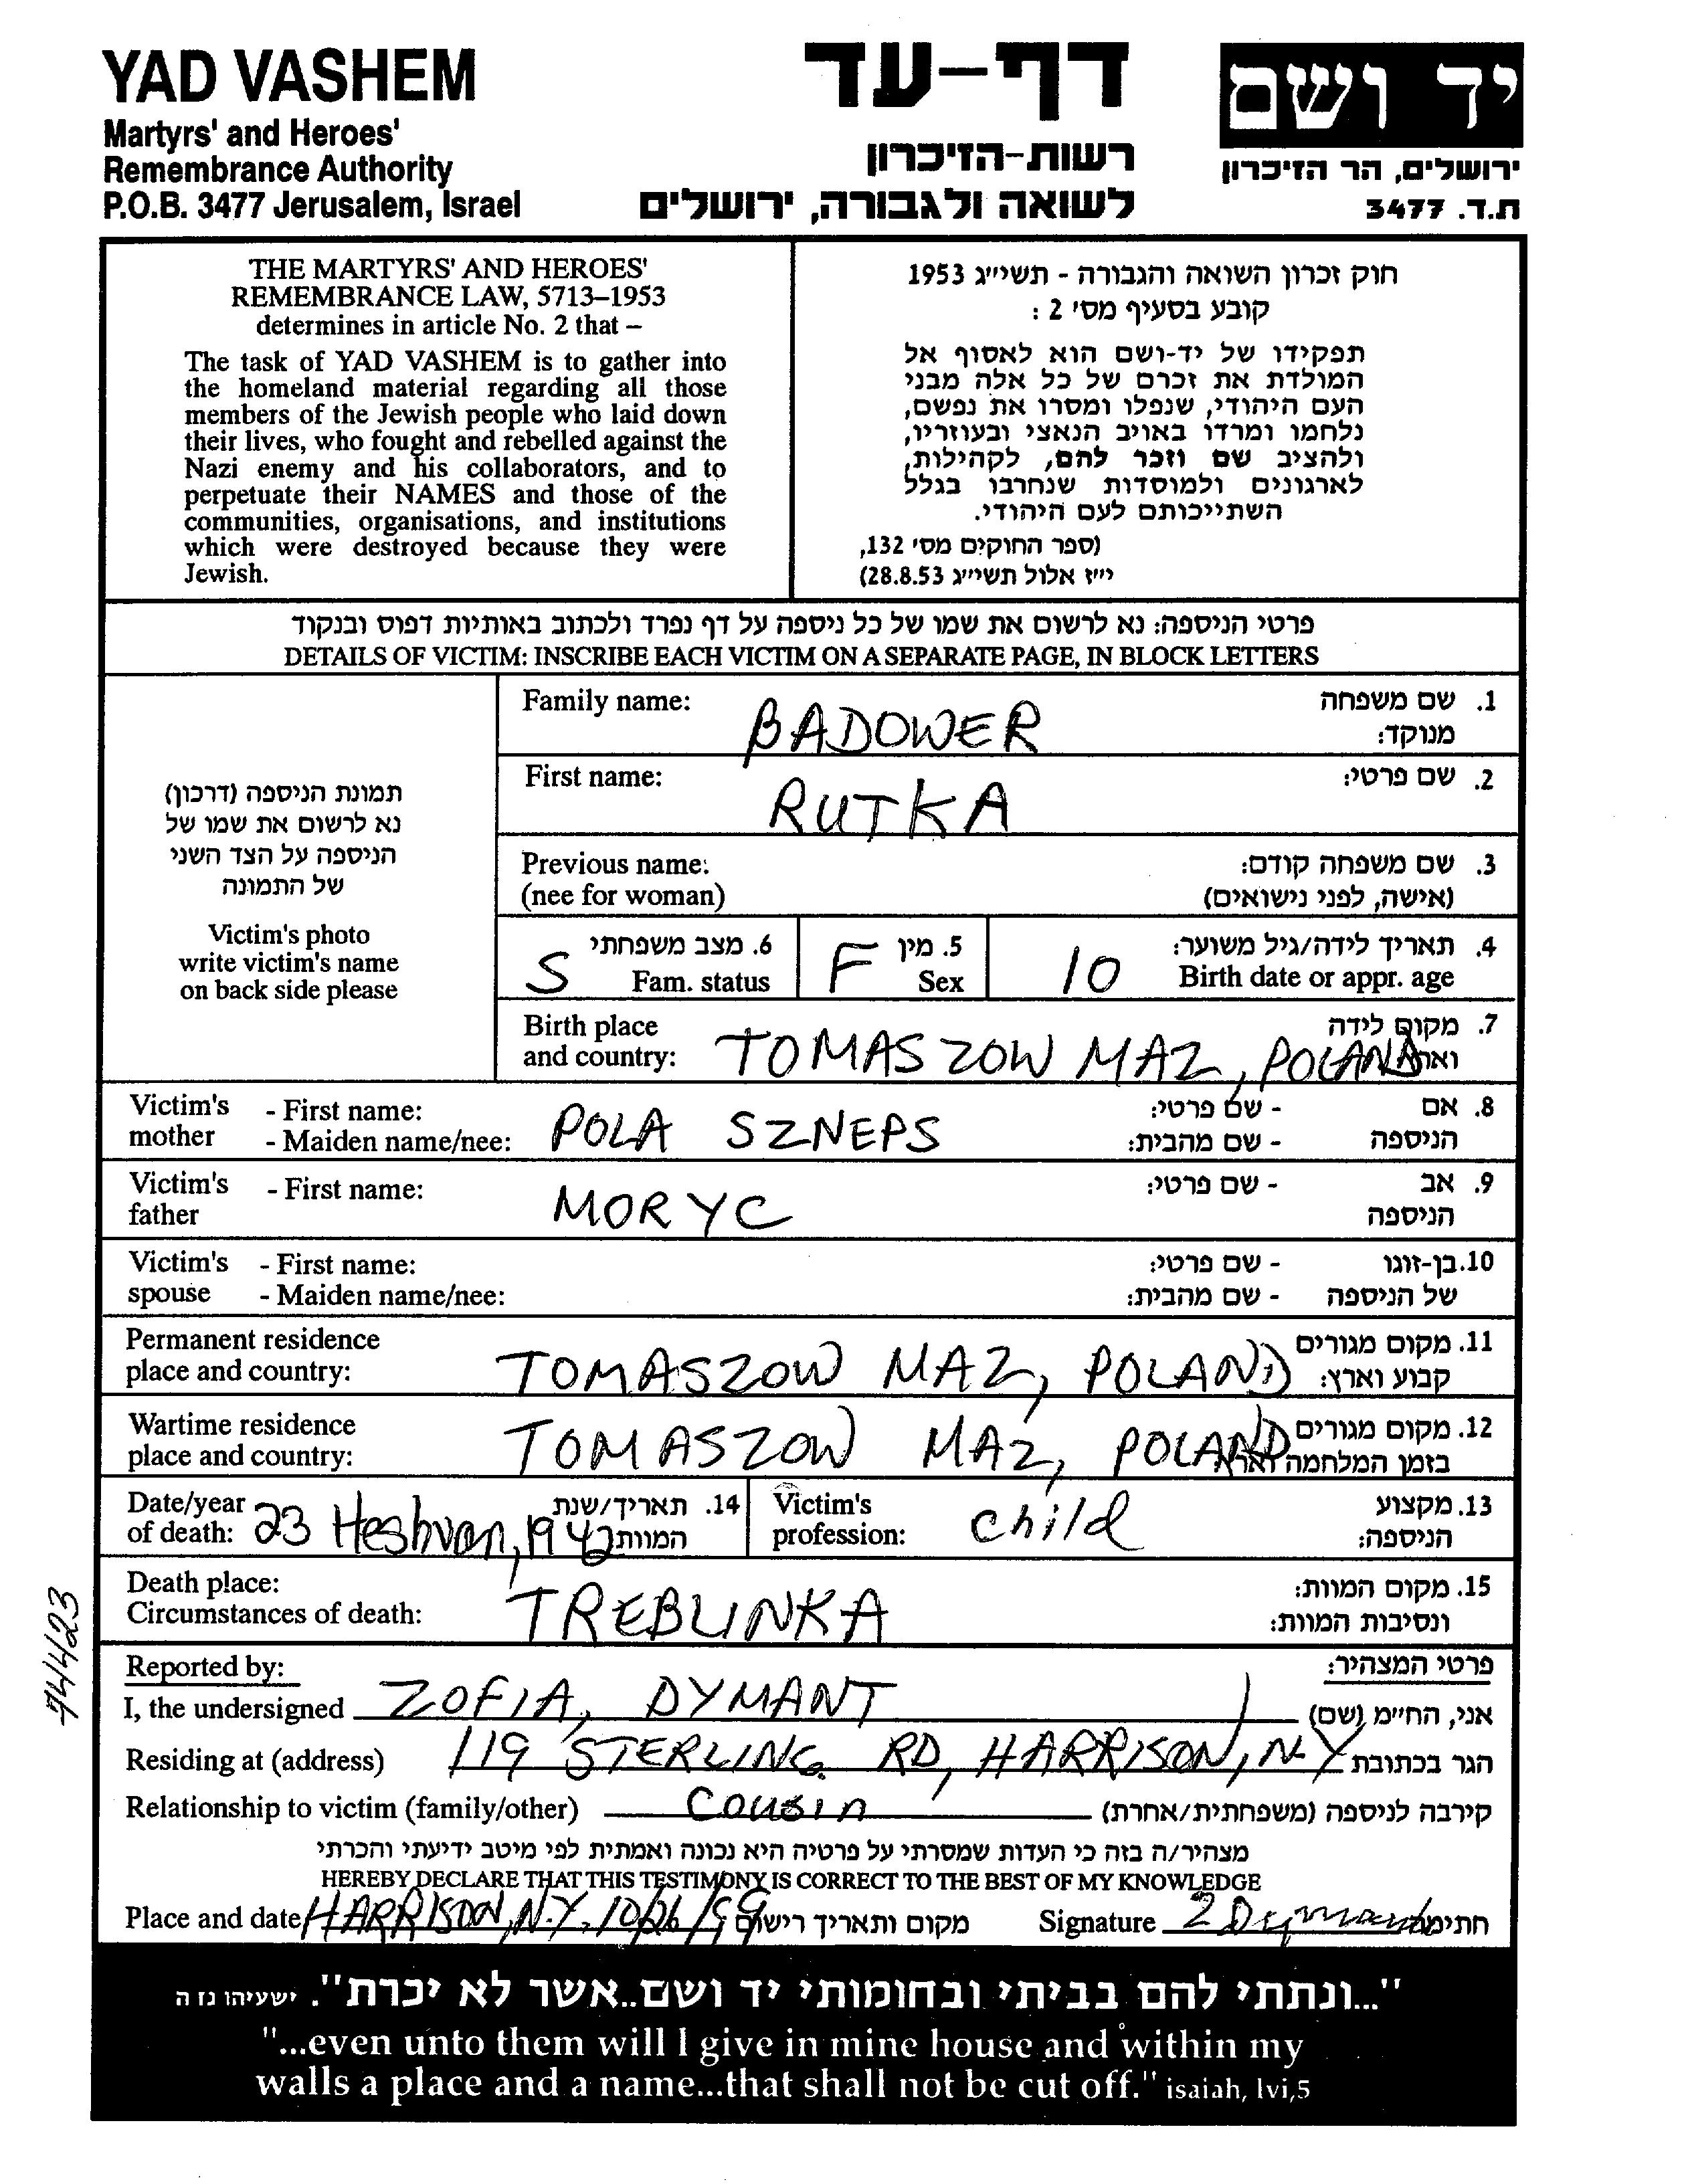 YAD VASHEM
Martyrs' and Heroes'
Remembrance Authority
P.O.B. 3477 Jerusalem, Israel
דף-עד
רשות-הזיכרון
לשואה ולגבורה, ירושלים
יד ושם
ירושלים, הר הזיכרון
ת.ד. 3477
THE MARTYRS' AND HEROES'
REMEMBRANCE LAW, 5713–1953
determines in article No. 2 that –
The task of YAD VASHEM is to gather into
the homeland material regarding all those
members of the Jewish people who laid down
their lives, who fought and rebelled against the
Nazi enemy and his collaborators, and to
perpetuate their NAMES and those of the
communities, organisations, and institutions
which were destroyed because they were
Jewish.
חוק זכרון השואה והגבורה - תשי״ג 1953
קובע בסעיף מס׳ 2 :
תפקידו של יד-ושם הוא לאסוף אל
המולדת את זכרם של כל אלה מבני
העם היהודי, שנפלו ומסרו את נפשם,
נלחמו ומרדו באויב הנאצי ובעוזריו,
ולהציב שם וזכר להם, לקהילות,
לארגונים ולמוסדות שנחרבו בגלל
השתייכותם לעם היהודי.
(ספר החוקים מס׳ 132,
י״ז אלול תשי״ג 28.8.53)
פרטי הניספה: נא לרשום את שמו של כל ניספה על דף נפרד ולכתוב באותיות דפוס ובנקוד
DETAILS OF VICTIM: INSCRIBE EACH VICTIM ON A SEPARATE PAGE, IN BLOCK LETTERS
תמונת הניספה (דרכון)
נא לרשום את שמו של
הניספה על הצד השני
של התמונה
Victim's photo
write victim's name
on back side please
Family name: BADOWER 1. שם משפחה
מנוקד:
First name: RUTKA 2. שם פרטי:
Previous name: 3. שם משפחה קודם:
(nee for woman) (אישה, לפני נישואים)
S 6. מצב משפחתי F 5. מין 10 4. תאריך לידה/גיל משוער:
Fam. status Sex Birth date or appr. age
Birth place 7. מקום לידה
and country: TOMASZOW MAZ, POLAND
Victim's - First name: POLA SZNEPS - שם פרטי: 8. אם
mother - Maiden name/nee: - שם מהבית: הניספה
Victim's - First name: MORYC - שם פרטי: 9. אב
father הניספה
Victim's - First name: - שם פרטי: 10. בן-זוגו
spouse - Maiden name/nee: - שם מהבית: של הניספה
Permanent residence 11. מקום מגורים
place and country: TOMASZOW MAZ, POLAND קבוע וארץ:
Wartime residence 12. מקום מגורים
place and country: TOMASZOW MAZ, POLAND בזמן המלחמה
Date/year 14. תאריך/שנת Victim's 13. מקצוע
of death: 23 Heshvan, 1942 המוות profession: child הניספה:
Death place: 15. מקום המוות:
Circumstances of death: TREBLINKA ונסיבות המוות:
74423
Reported by: פרטי המצהיר:
I, the undersigned ZOFIA, DYMANT אני, החי״מ (שם)
Residing at (address) 119 STERLING RD, HARRISON, N.Y הגר בכתובת
Relationship to victim (family/other) Cousin קירבה לניספה (משפחתית/אחרת)
מצהיר/ה בזה כי העדות שמסרתי על פרטיה היא נכונה ואמתית לפי מיטב ידיעתי והכרתי
HEREBY DECLARE THAT THIS TESTIMONY IS CORRECT TO THE BEST OF MY KNOWLEDGE
Place and date HARRISON, N.Y. 10/26/99 מקום ותאריך רישום Signature Z Dymant חתימה
"...ונתתי להם בביתי ובחומותי יד ושם..אשר לא יכרת". ישעיהו נז ה
"...even unto them will I give in mine house and within my
walls a place and a name...that shall not be cut off." isaiah, lvi,5